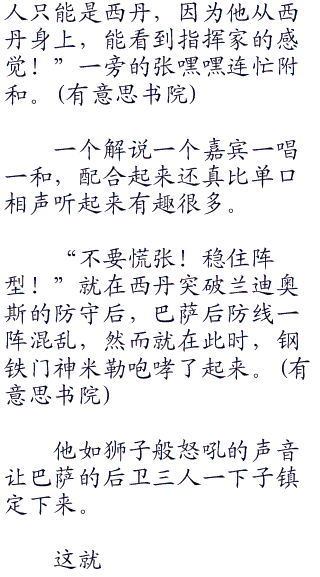 人只能是西丹，因为他从西
丹身上，能看到指挥家的感
觉！”一旁的张嘿嘿连忙附
和。(有意思书院)
一个解说一个嘉宾一唱
一和，配合起来还真比单口
相声听起来有趣很多。
“不要慌张！稳住阵
型！”就在西丹突破兰迪奥
斯的防守后，巴萨后防线一
阵混乱，然而就在此时，钢
铁门神米勒咆哮了起来。(有
意思书院)
他如狮子般怒吼的声音
让巴萨的后卫三人一下子镇
定下来。
这就